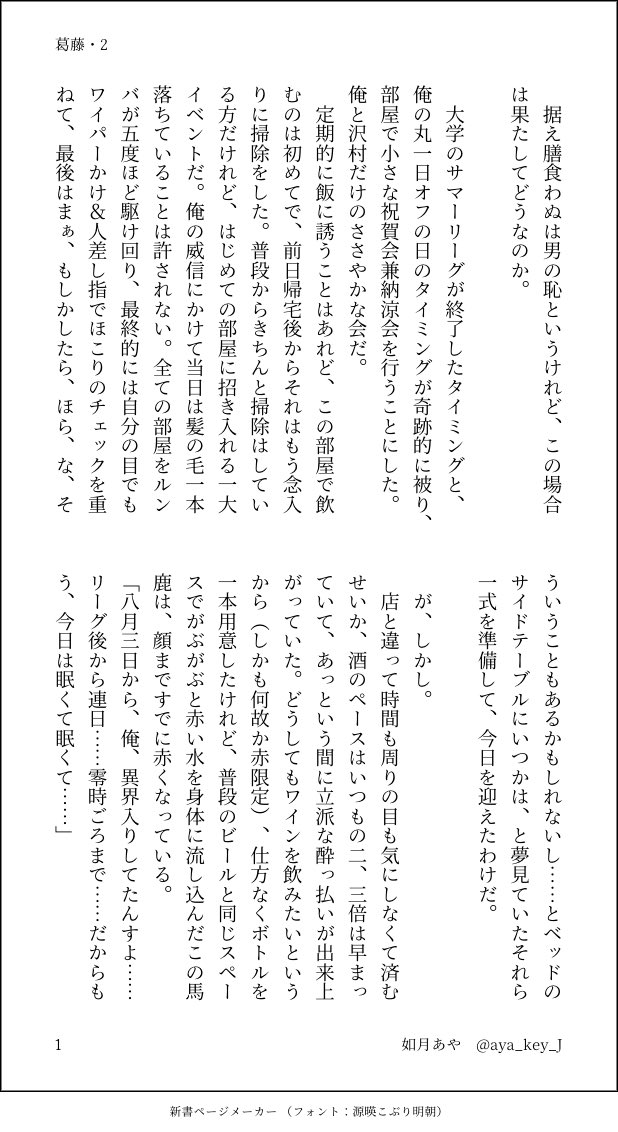 葛藤・2
　据え膳食わぬは男の恥というけれど、この場合
は果たしてどうなのか。
　大学のサマーリーグが終了したタイミングと、
俺の丸一日オフの日のタイミングが奇跡的に被り、
部屋で小さな祝賀会兼納涼会を行うことにした。
俺と沢村だけのささやかな会だ。
　定期的に飯に誘うことはあれど、この部屋で飲
むのは初めてで、前日帰宅後からそれはもう念入
りに掃除をした。普段からきちんと掃除はしてい
る方だけれど、はじめての部屋に招き入れる一大
イベントだ。俺の威信にかけて当日は髪の毛一本
落ちていることは許されない。全ての部屋をルン
バが五度ほど駆け回り、最終的には自分の目でも
ワイパーかけ＆人差し指でほこりのチェックを重
ねて、最後はまぁ、もしかしたら、ほら、な、そ
ういうこともあるかもしれないし……とベッドの
サイドテーブルにいつかは、と夢見ていたそれら
一式を準備して、今日を迎えたわけだ。
　が、しかし。
　店と違って時間も周りの目も気にしなくて済む
せいか、酒のペースはいつもの二、三倍は早まっ
ていて、あっという間に立派な酔っ払いが出来上
がっていた。どうしてもワインを飲みたいという
から（しかも何故か赤限定）、仕方なくボトルを
一本用意したけれど、普段のビールと同じスペー
スでがぶがぶと赤い水を身体に流し込んだこの馬
鹿は、顔まですでに赤くなっている。
「八月三日から、俺、異界入りしてたんすよ……
リーグ後から連日……零時ごろまで……だからも
う、今日は眠くて眠くて……」
1
如月あや　@aya_key_J
新書ページメーカー（フォント：源暎こぶり明朝）